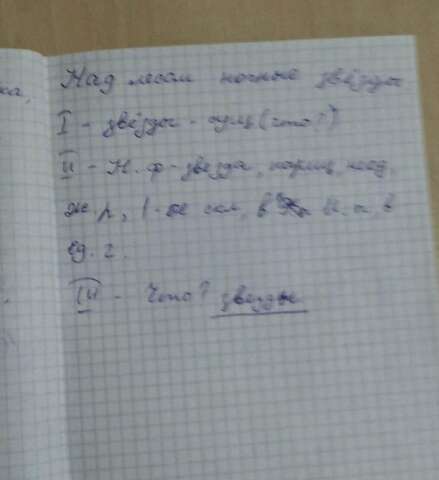 ка,
Над лесом ночные звёзды
I - звёзды - сущ. (что?)
II - Н. ф - звезда, нариц, неод,
ж. р, 1-ое скл, в И. п, в
ед. ч.
III - Что? звезды